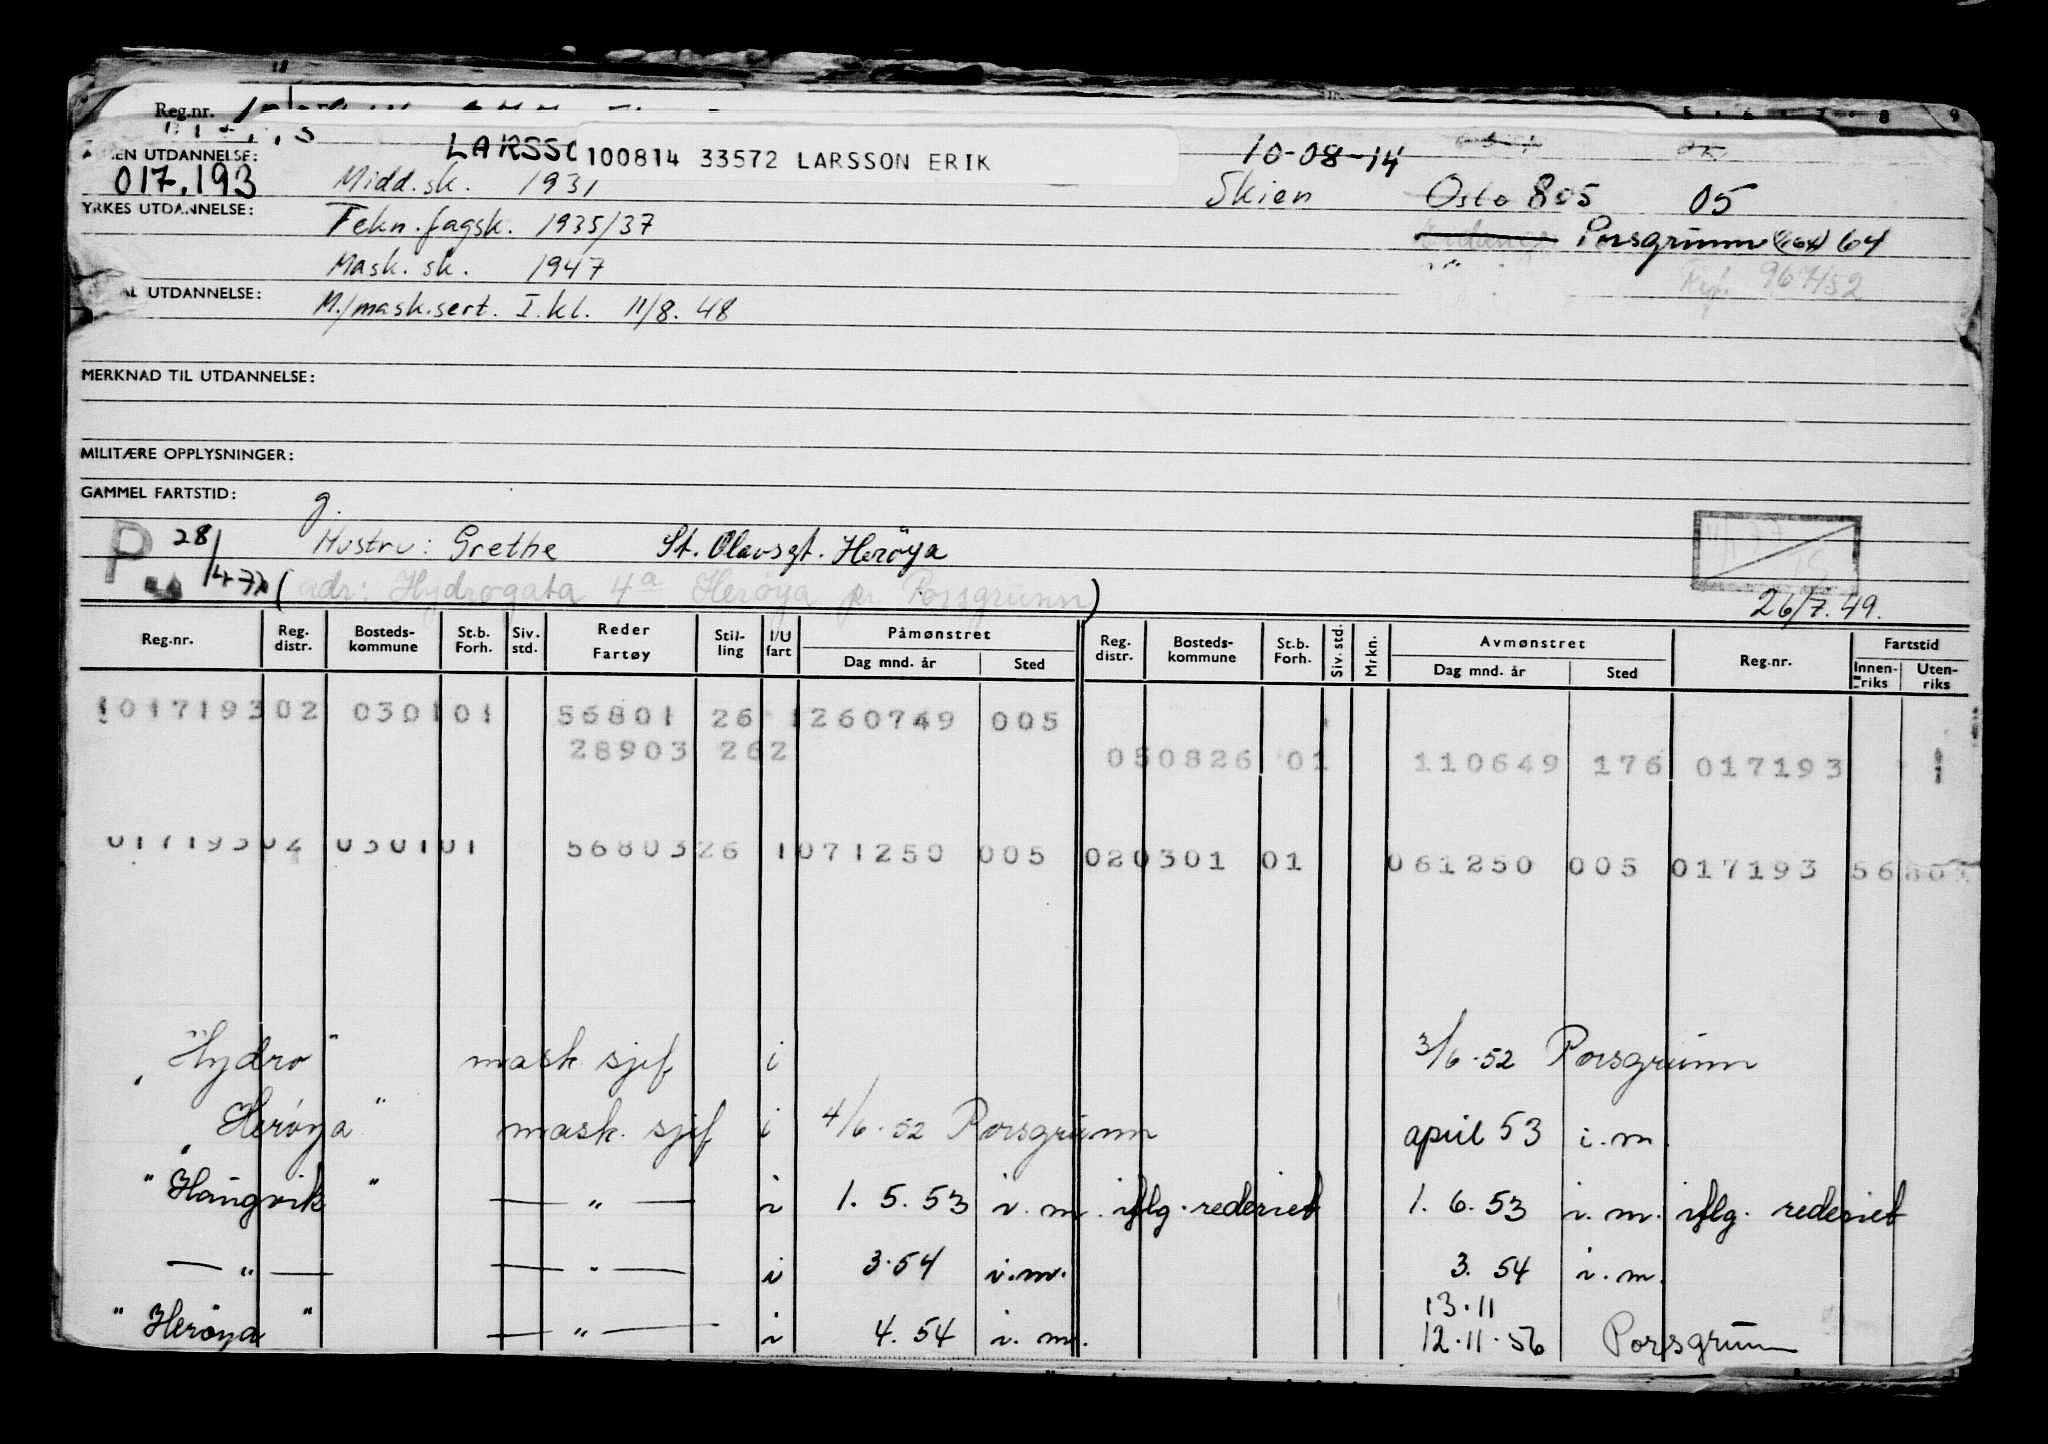 Reg.nr.
LARSSO 100814 33572 LARSSON ERIK 10-08-14
EN UTDANNELSE:
017.193 Midd.sk. 1931 Skien Oslo 805 05
YRKES UTDANNELSE: Tekn.fagsk. 1935/37 Porsgrunn (164) 64
Mask. sk. 1947
AL UTDANNELSE: M./mask.sert. I.kl. 11/8. 48
MERKNAD TIL UTDANNELSE:
MILITÆRE OPPLYSNINGER:
GAMMEL FARTSTID: g.
P 28/4-77 Hustru: Grethe St. Olavsgt. Heröya
(adr: Hydrogata 4a Heröya pr. Porsgrunn)
26/7.49.
Reg.nr. Reg. distr. Bosteds-kommune St.b. Forh. Siv. std. Reder Fartøy Stil-ling I/U fart Påmønstret Dag mnd. år Sted Reg. distr. Bosteds-kommune St.b. Forh. Siv. std. Mrkn. Avmønstret Dag mnd. år Sted Reg.nr. Fartstid Innen-riks Uten-riks
1017193 02 0301 01 56801 26 1 260749 005
28903 26 2 05 0826 01 110649 176 017193
017193 02 0301 01 56803 26 1 071250 005 02 0301 01 061250 005 017193 5680
"Hydro" mask sjef i 3/6.52 Porsgrunn
"Herøya" mask. sjef i 4/6.52 Porsgrunn april 53 i.m.
"Haugvik" — " — i 1. 5. 53 i.m. iflg. rederiet 1. 6. 53 i.m. iflg. rederiet
— " — — " — i 3.54 i.m. 3. 54 i.m.
13.11
"Heröya" — " — i 4. 54 i.m. 12.11.56 Porsgrunn